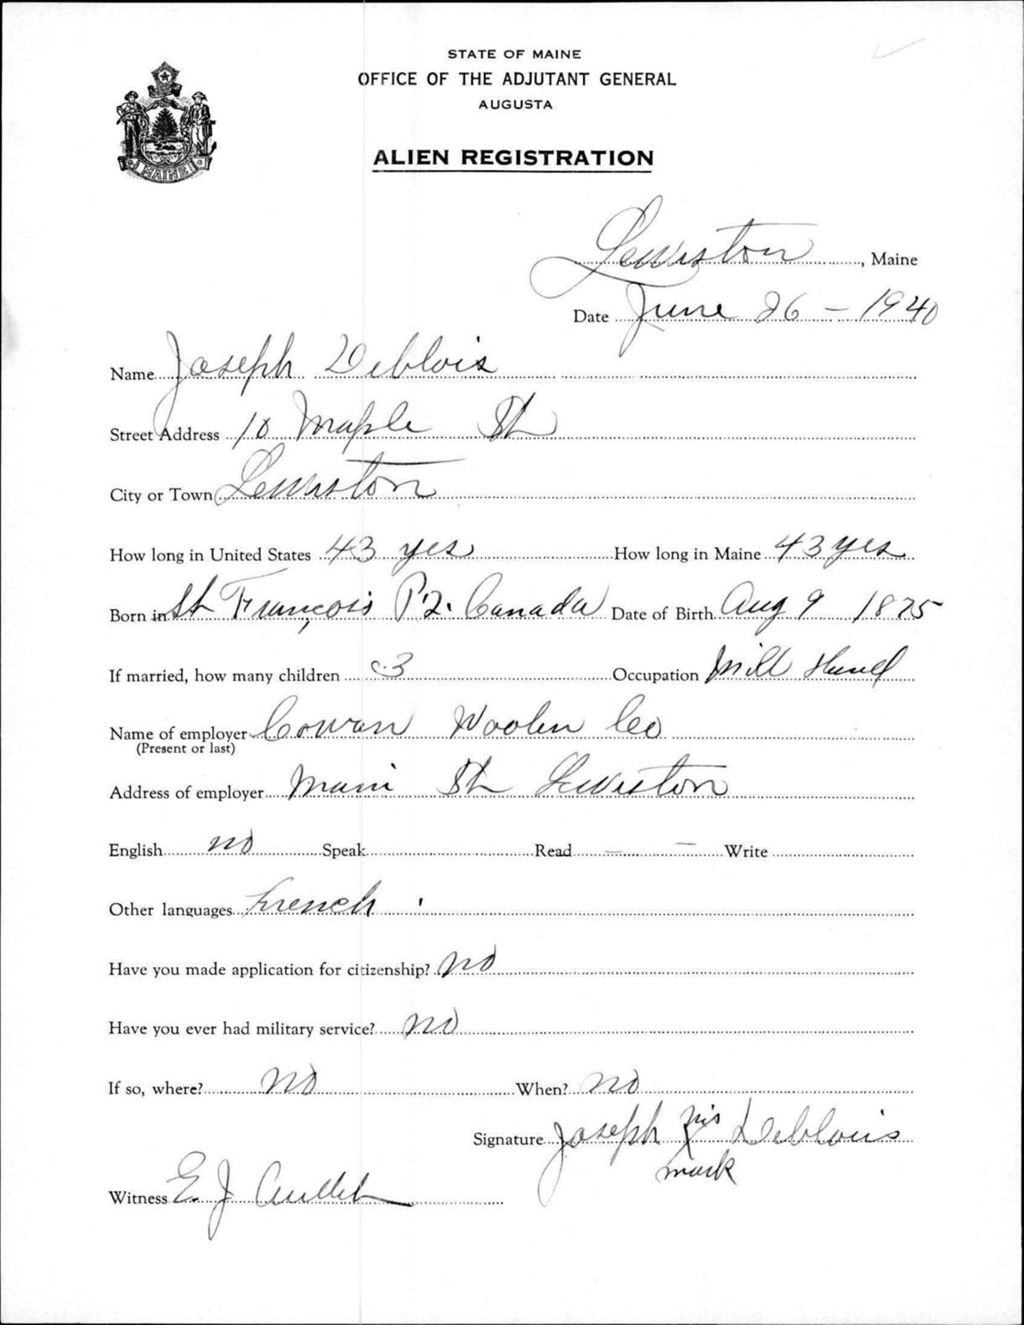 STATE OF MAINE
OFFICE OF THE ADJUTANT GENERAL
AUGUSTA
ALIEN REGISTRATION
MAINE
Lewiston, Maine
Date June 26 - 1940
Name Joseph Deblois
Street Address 10 Maple St
City or Town Lewiston
How long in United States 43 yrs How long in Maine 43 yrs
Born in St François P.Q. Canada Date of Birth Aug 9 1875
If married, how many children 3 Occupation Mill Hand
Name of employer Cowan Woolen Co
(Present or last)
Address of employer Main St Lewiston
English no Speak Read — — Write
Other languages French
Have you made application for citizenship? no
Have you ever had military service? no
If so, where? no When? no
Signature Joseph his Deblois
mark
Witness E. J.